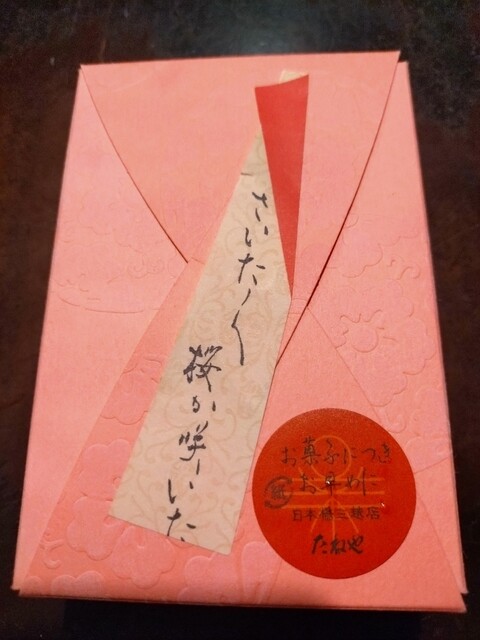 さいた〱
桜が咲いた
お菓子につき
お早めに
日本橋三越店
たねや